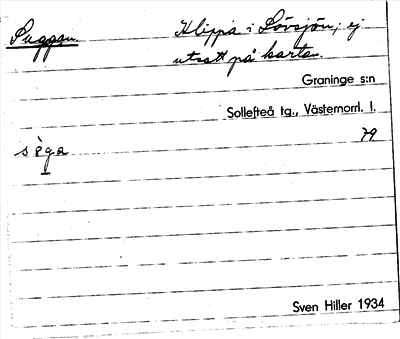 Suggan. Klippa i Lövsjön; ej
utsatt på kartan.
Graninge s:n
Sollefteå tg., Västernorrl. l.
79
Sven Hiller 1934